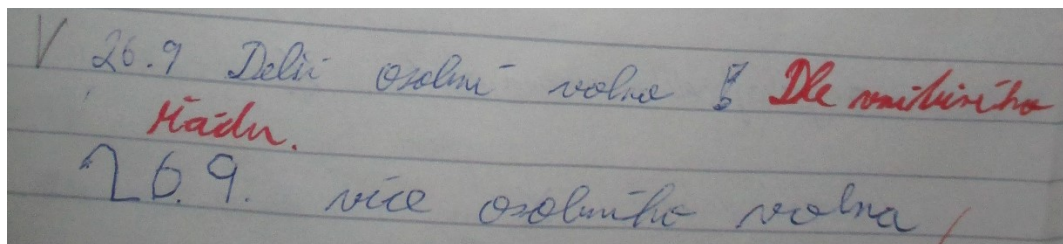 V 26.9 Delší osobní volno ! Dle vnitřního
řádu.
26.9. více osobního volna /